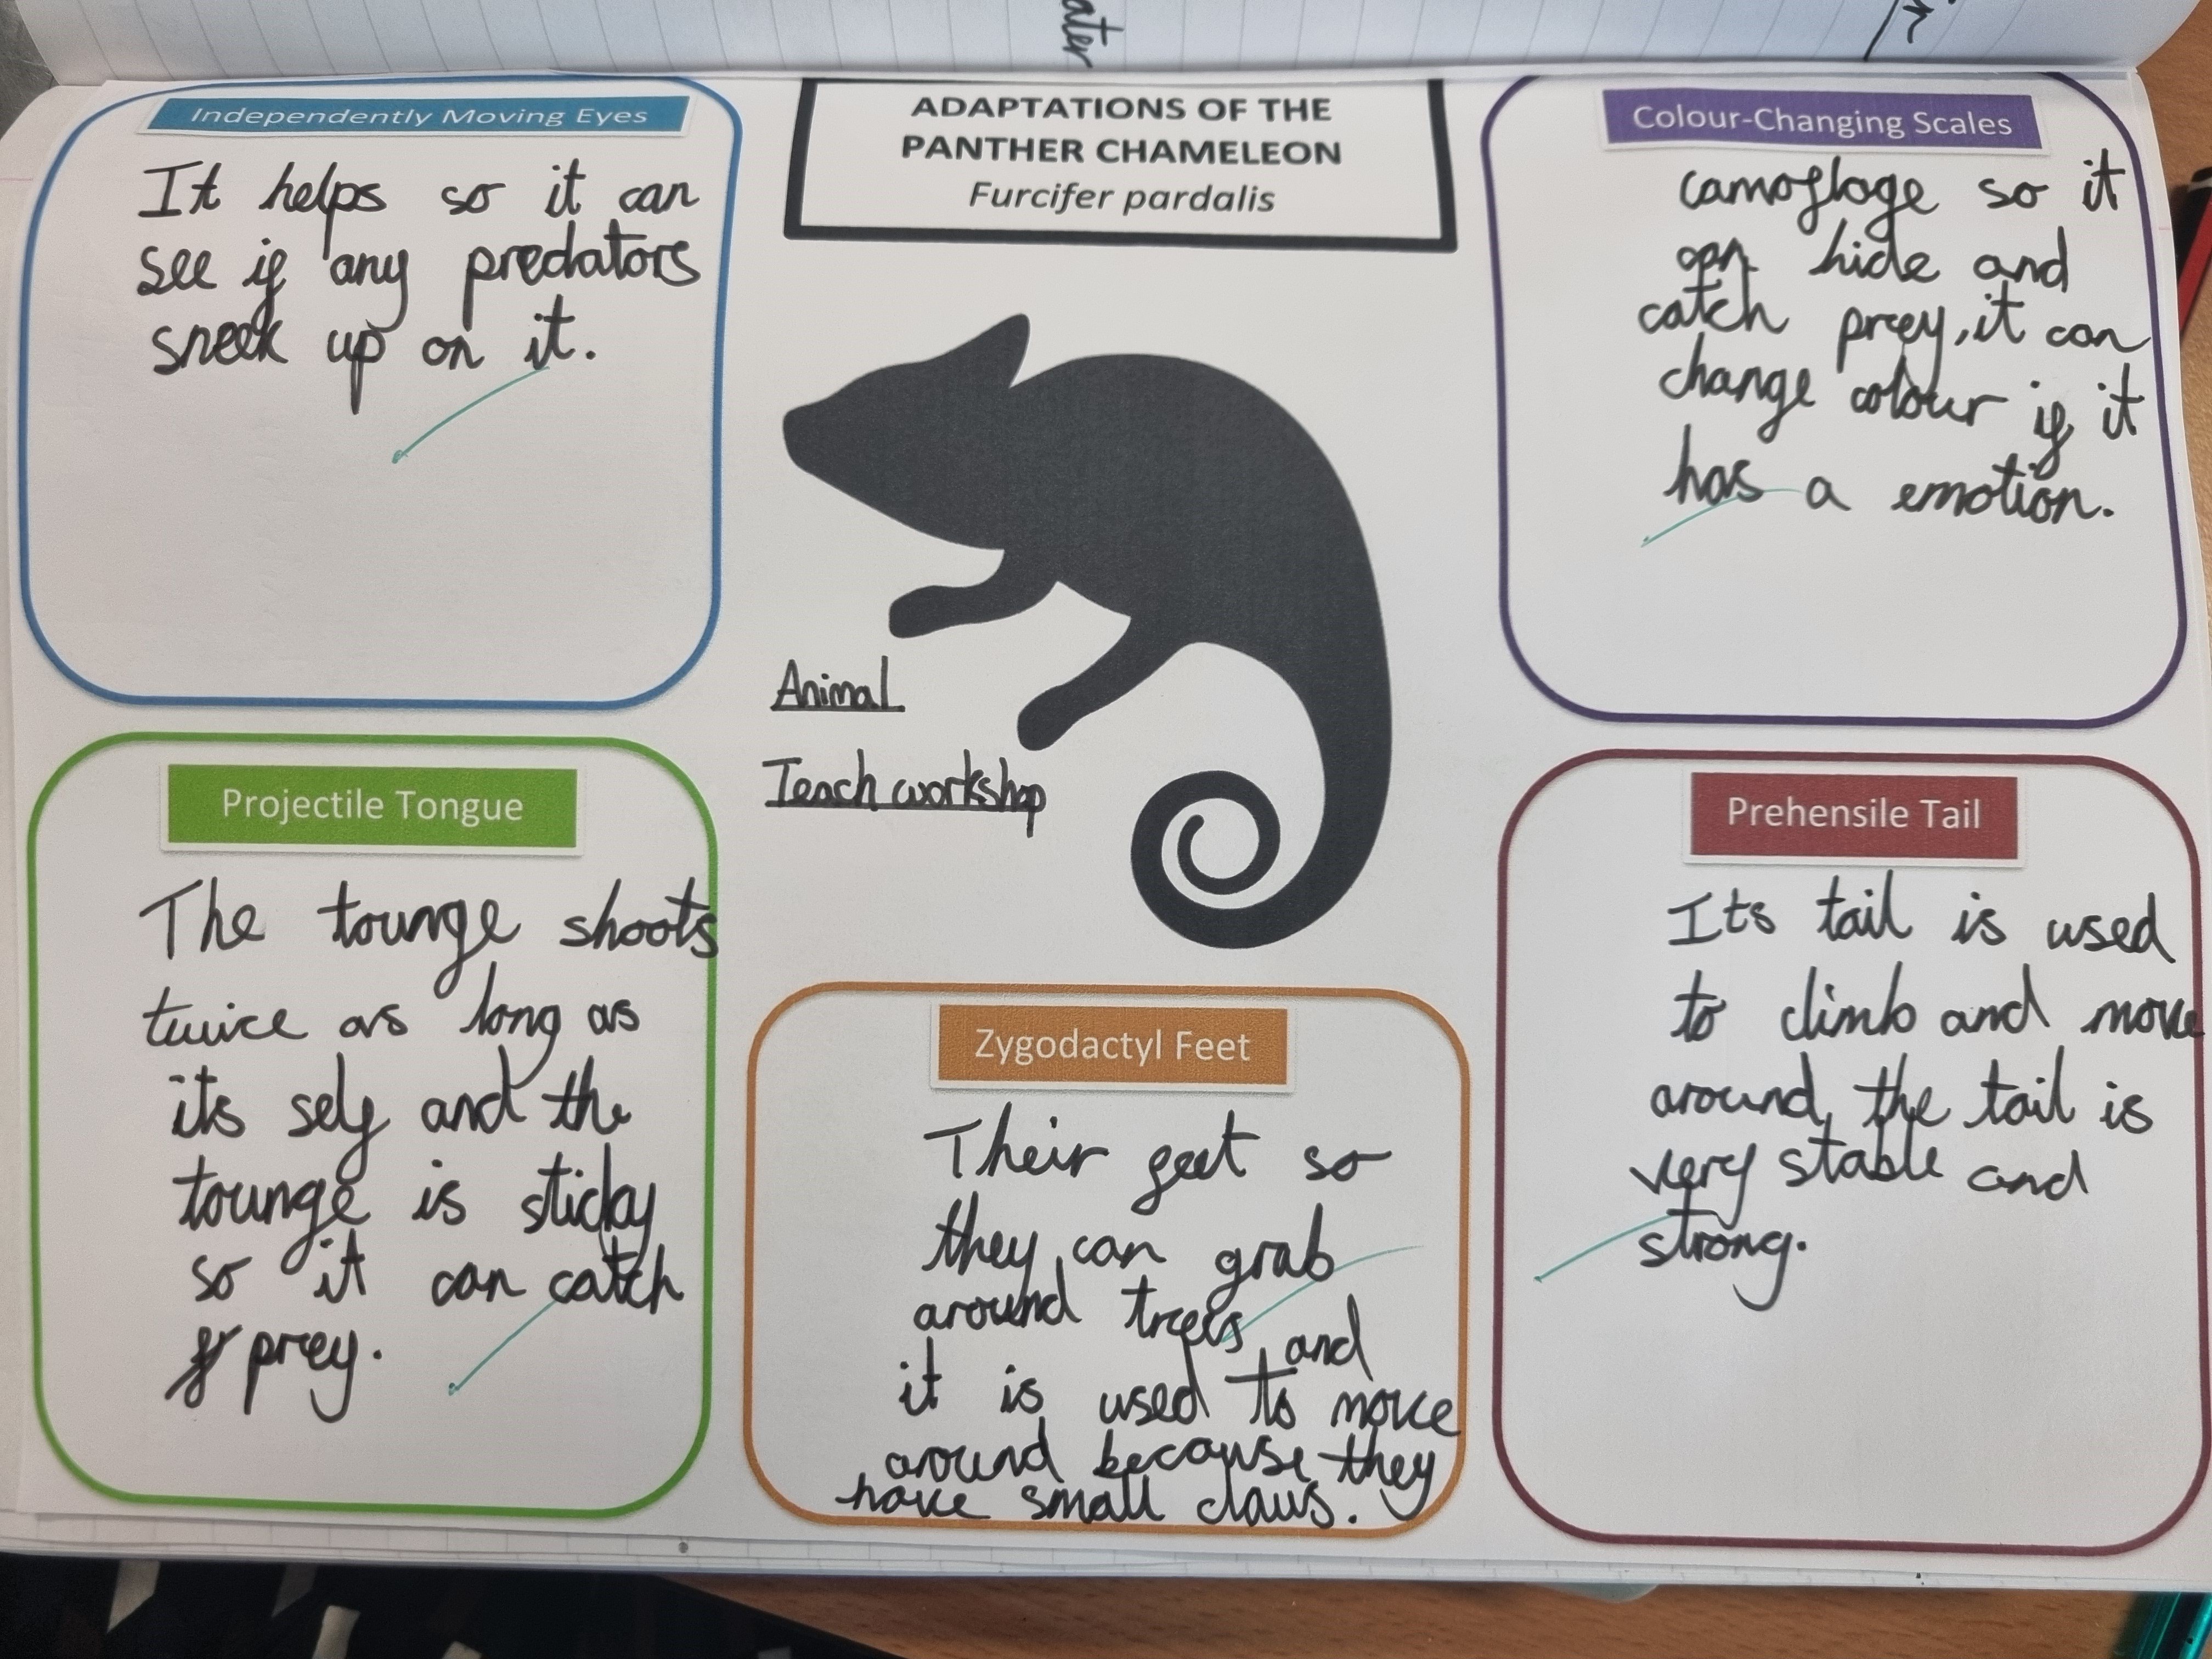 ater
ADAPTATIONS OF THE
PANTHER CHAMELEON
Furcifer pardalis
Independently Moving Eyes
It helps so it can
see if any predators
sneek up on it.
Colour-Changing Scales
camoflage so it
can hide and
catch prey, it can
change colour if it
has a emotion.
Animal
Teach workshop
Projectile Tongue
The tounge shoots
twice as long as
its self and the
tounge is sticky
so it can catch
prey.
Zygodactyl Feet
Their feet so
they can grab
around trees and
it is used to move
around because they
have small claws.
Prehensile Tail
Its tail is used
to climb and move
around, the tail is
very stable and
strong.